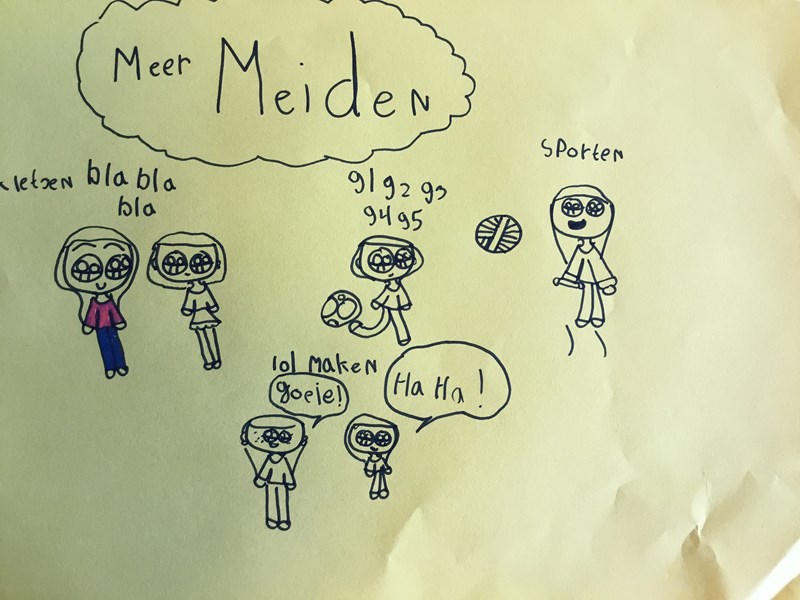 Meer Meiden
kletsen bla bla
bla
91 92 93
94 95
SPorten
lol maken
goeie!
Ha Ha!